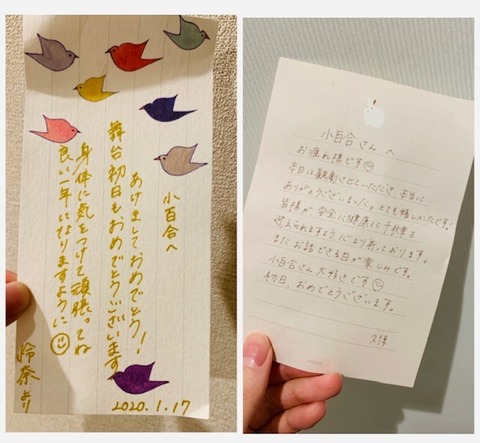 小百合へ
あけましておめでとう!
舞台初日もおめでとうございます
身体に気をつけて頑張ってね
良い年になりますように
怜奈より
2020.1.17
小百合さんへ
お疲れ様です
本日は観劇させていただき、本当に
ありがとうございました。とても嬉しかったです!
皆様が安全に健康に千秋楽を
迎えられますよう心より祈っております。
またお話できる日が楽しみです。
小百合さん大好きです
初日、おめでとうございます。
久保